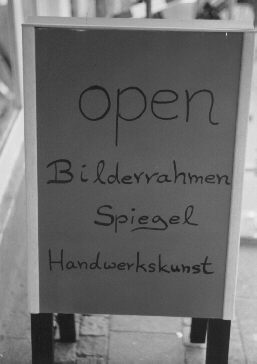 open
Bilderrahmen
Spiegel
Handwerkskunst